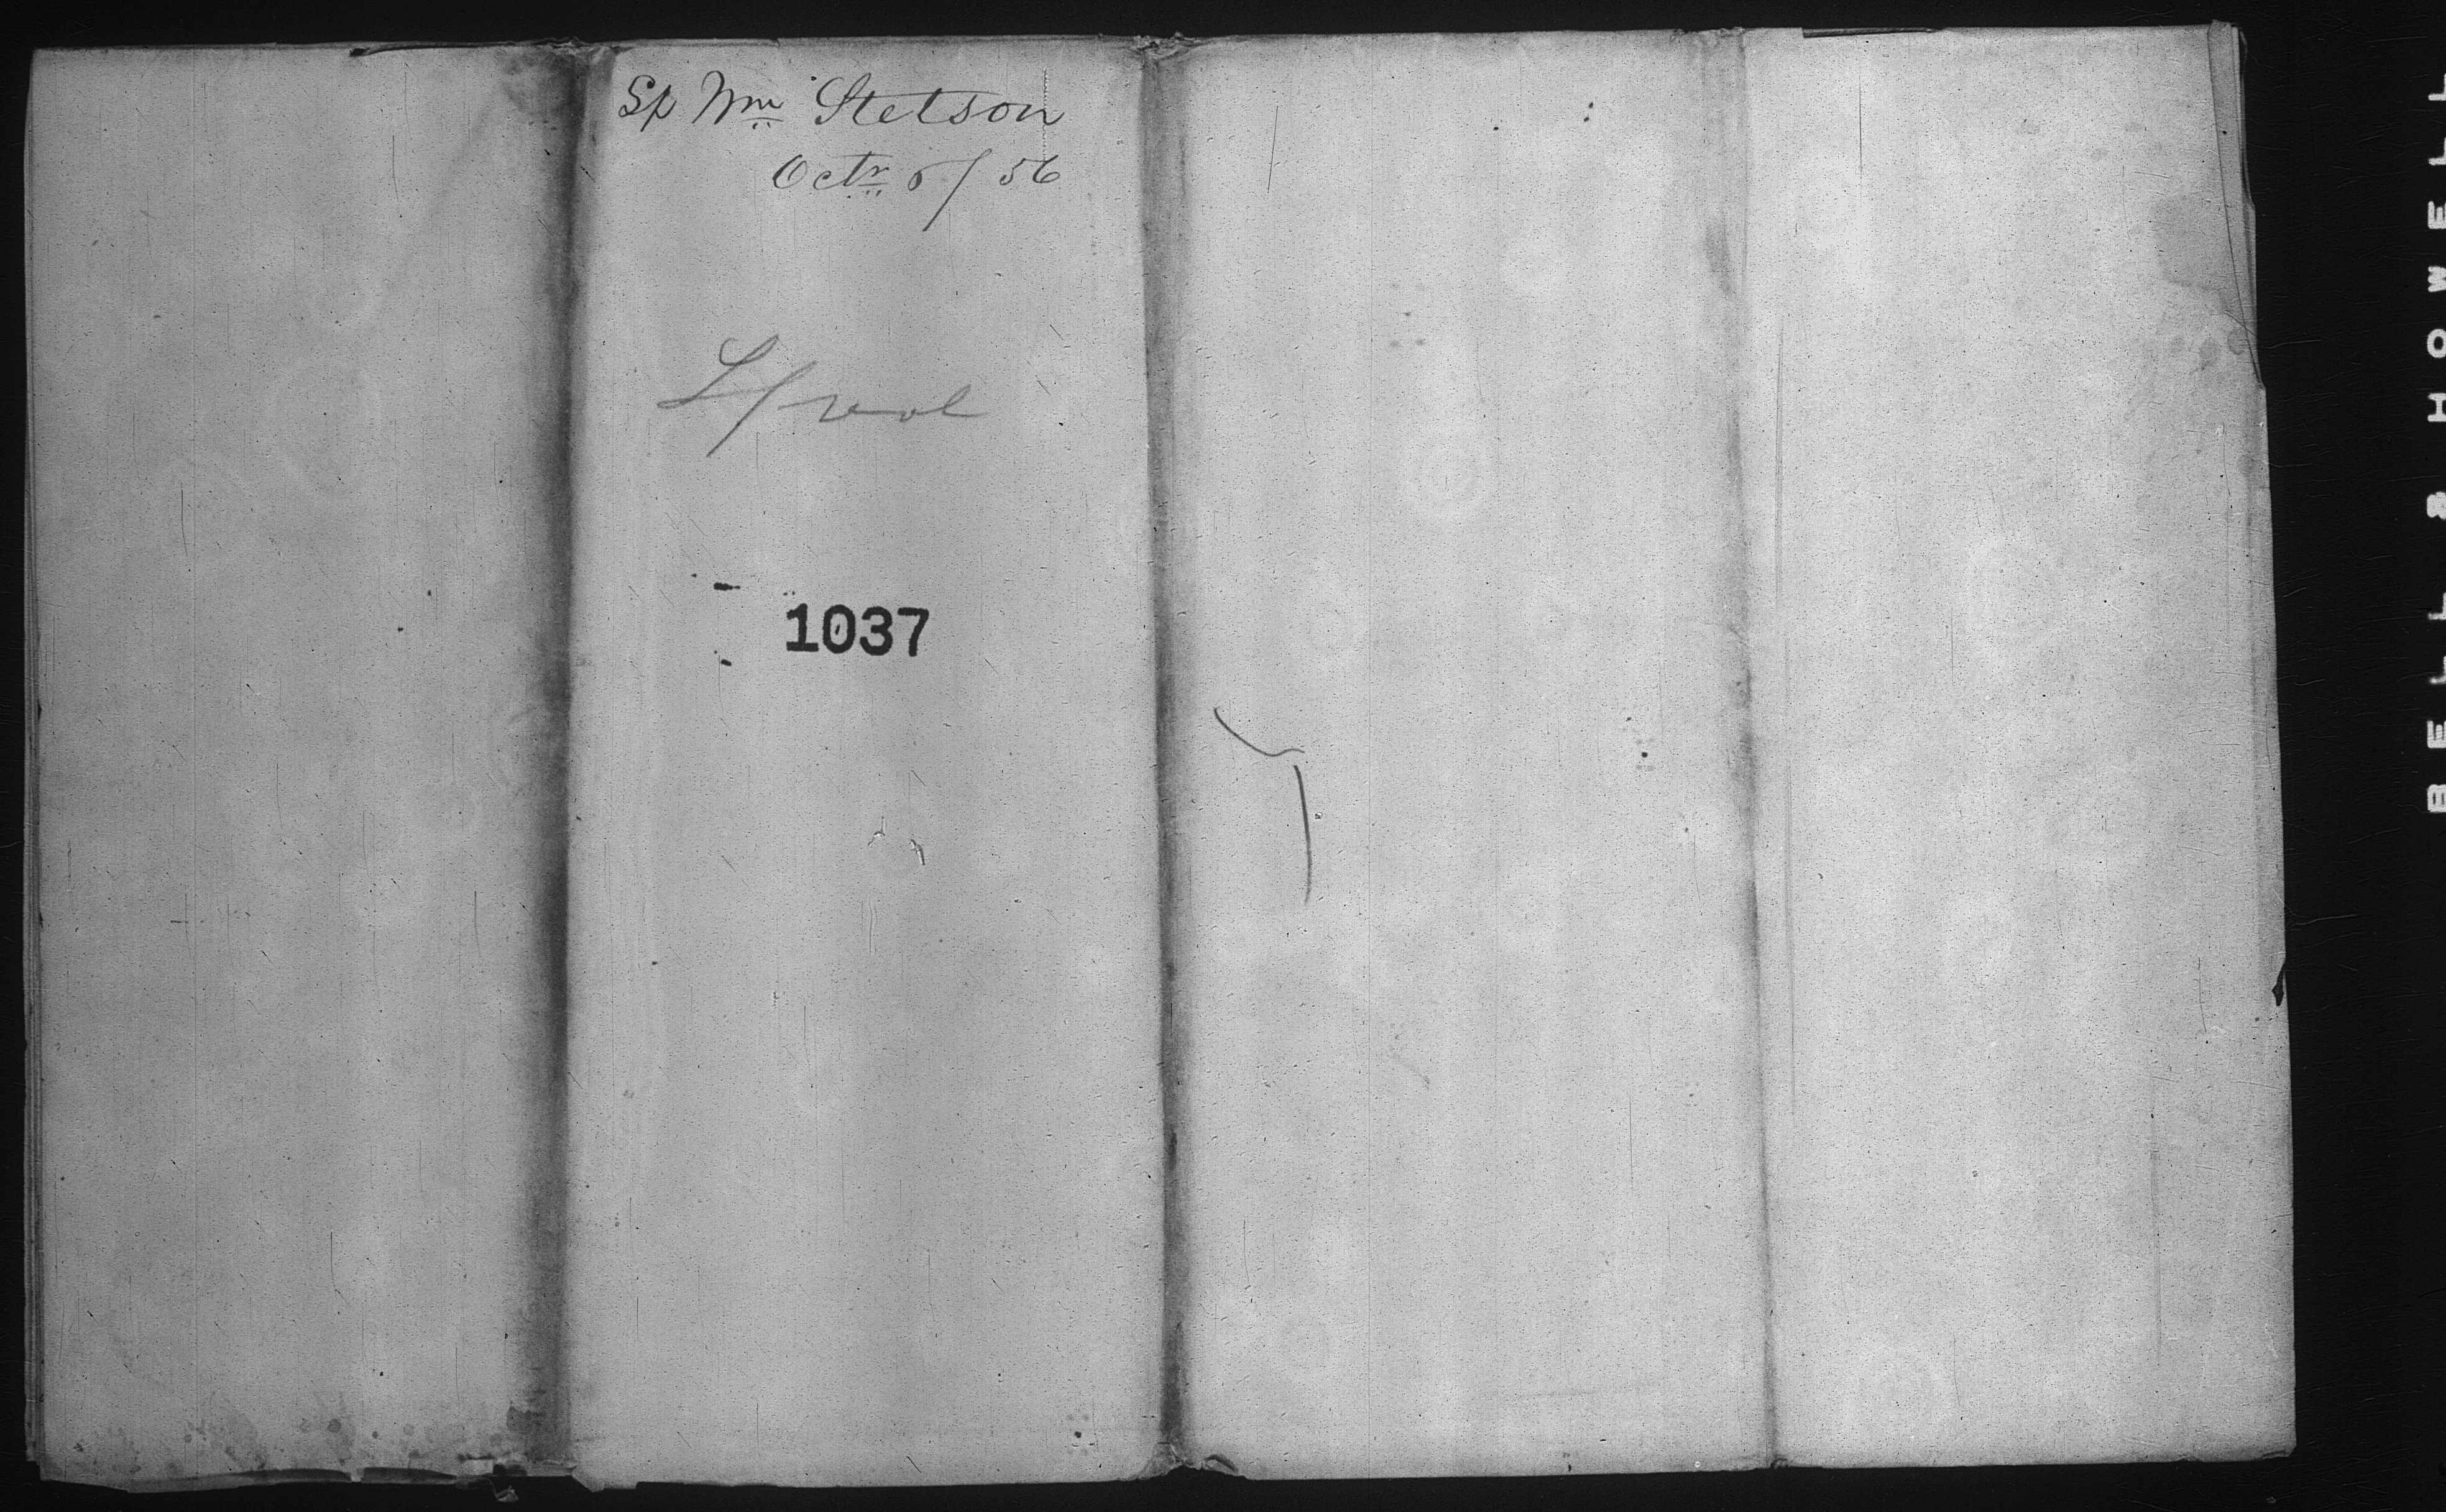 Sp Wm Stetson
Octr 8/56
L/pool
1037
BELL & HOWELL